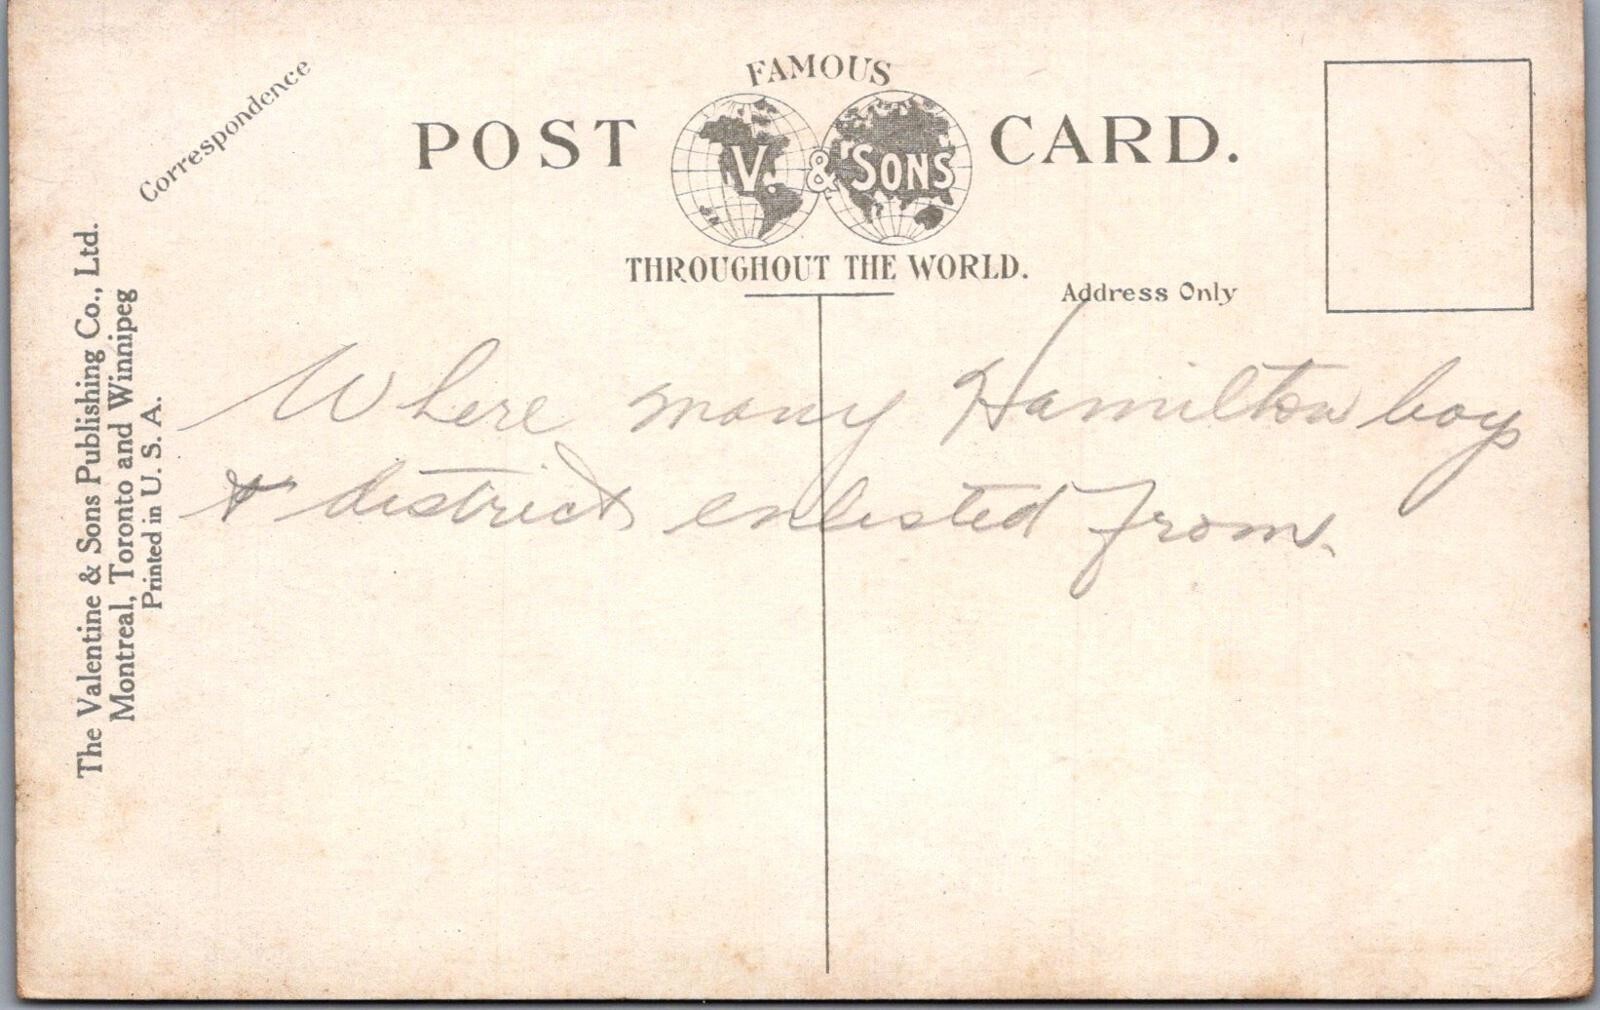 Correspondence
FAMOUS
POST V. & SONS CARD.
THROUGHOUT THE WORLD.
Address Only
The Valentine & Sons Publishing Co., Ltd.
Montreal, Toronto and Winnipeg
Printed in U. S. A.
Where many Hamilton boys
& district enlisted from.